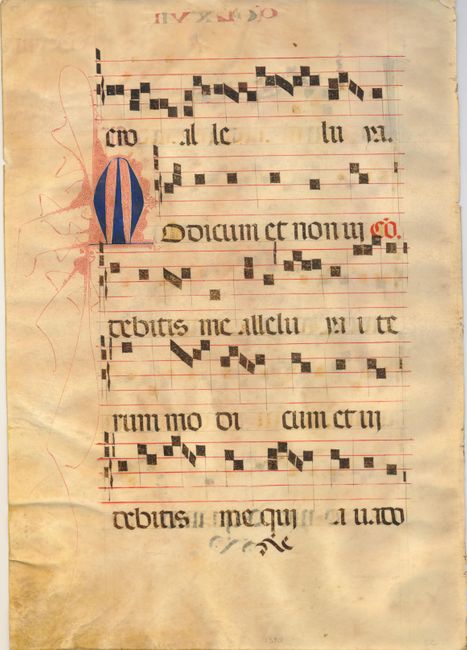 ero al le lu ya.
Modicum et non vi Co.
debitis me allelu ya i te
rum mo di cum et vi
debitis me qui a uado